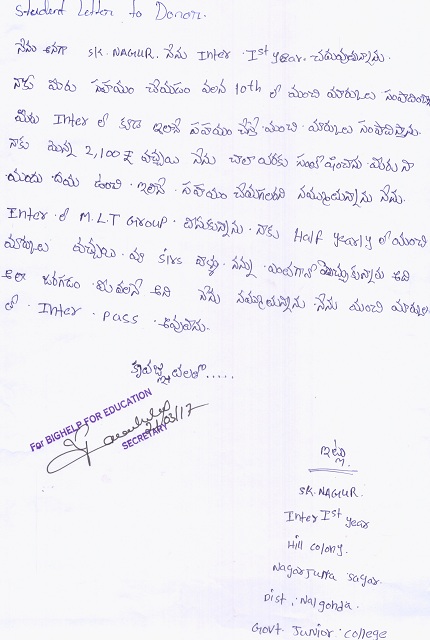 Student Letter to Donor.
నేను అనగా SK. NAGUR. నేను Inter Ist year. చదువుతున్నాను.
నాకు మీరు సహాయం చేయడం వలన 10th లో మంచి మార్కులు
మీరు Inter లో కూడా ఇలానే సహయం చేస్తే మంచి మార్కులు
నాకు మొన్న 2,100₹ వచ్చాయి నేను చాలా వరకు మీరు నా
మీదు దయ ఉంచి ఇలానే సహయం నమ్ముతున్నాను నేను.
Inter లో M.L.T Group. తీసుకున్నాను. నాకు Half yearly లో మంచి
మార్కులు వచ్చాయి. మా sirs వాళ్ళు నన్ను అది
అలా జరగడం మీ వలనే అని నేను నమ్ముతున్నాను. నేను మంచి
లో Inter pass అవుతాను.
కృతజ్ఞతలతో.....
For BIGHELP FOR EDUCATION
SECRETARY
ఇట్లు
SK. NAGUR.
Inter Ist year
Hill colony.
Nagarjuna sagar.
Dist, Nalgonda.
Govt. Junior college